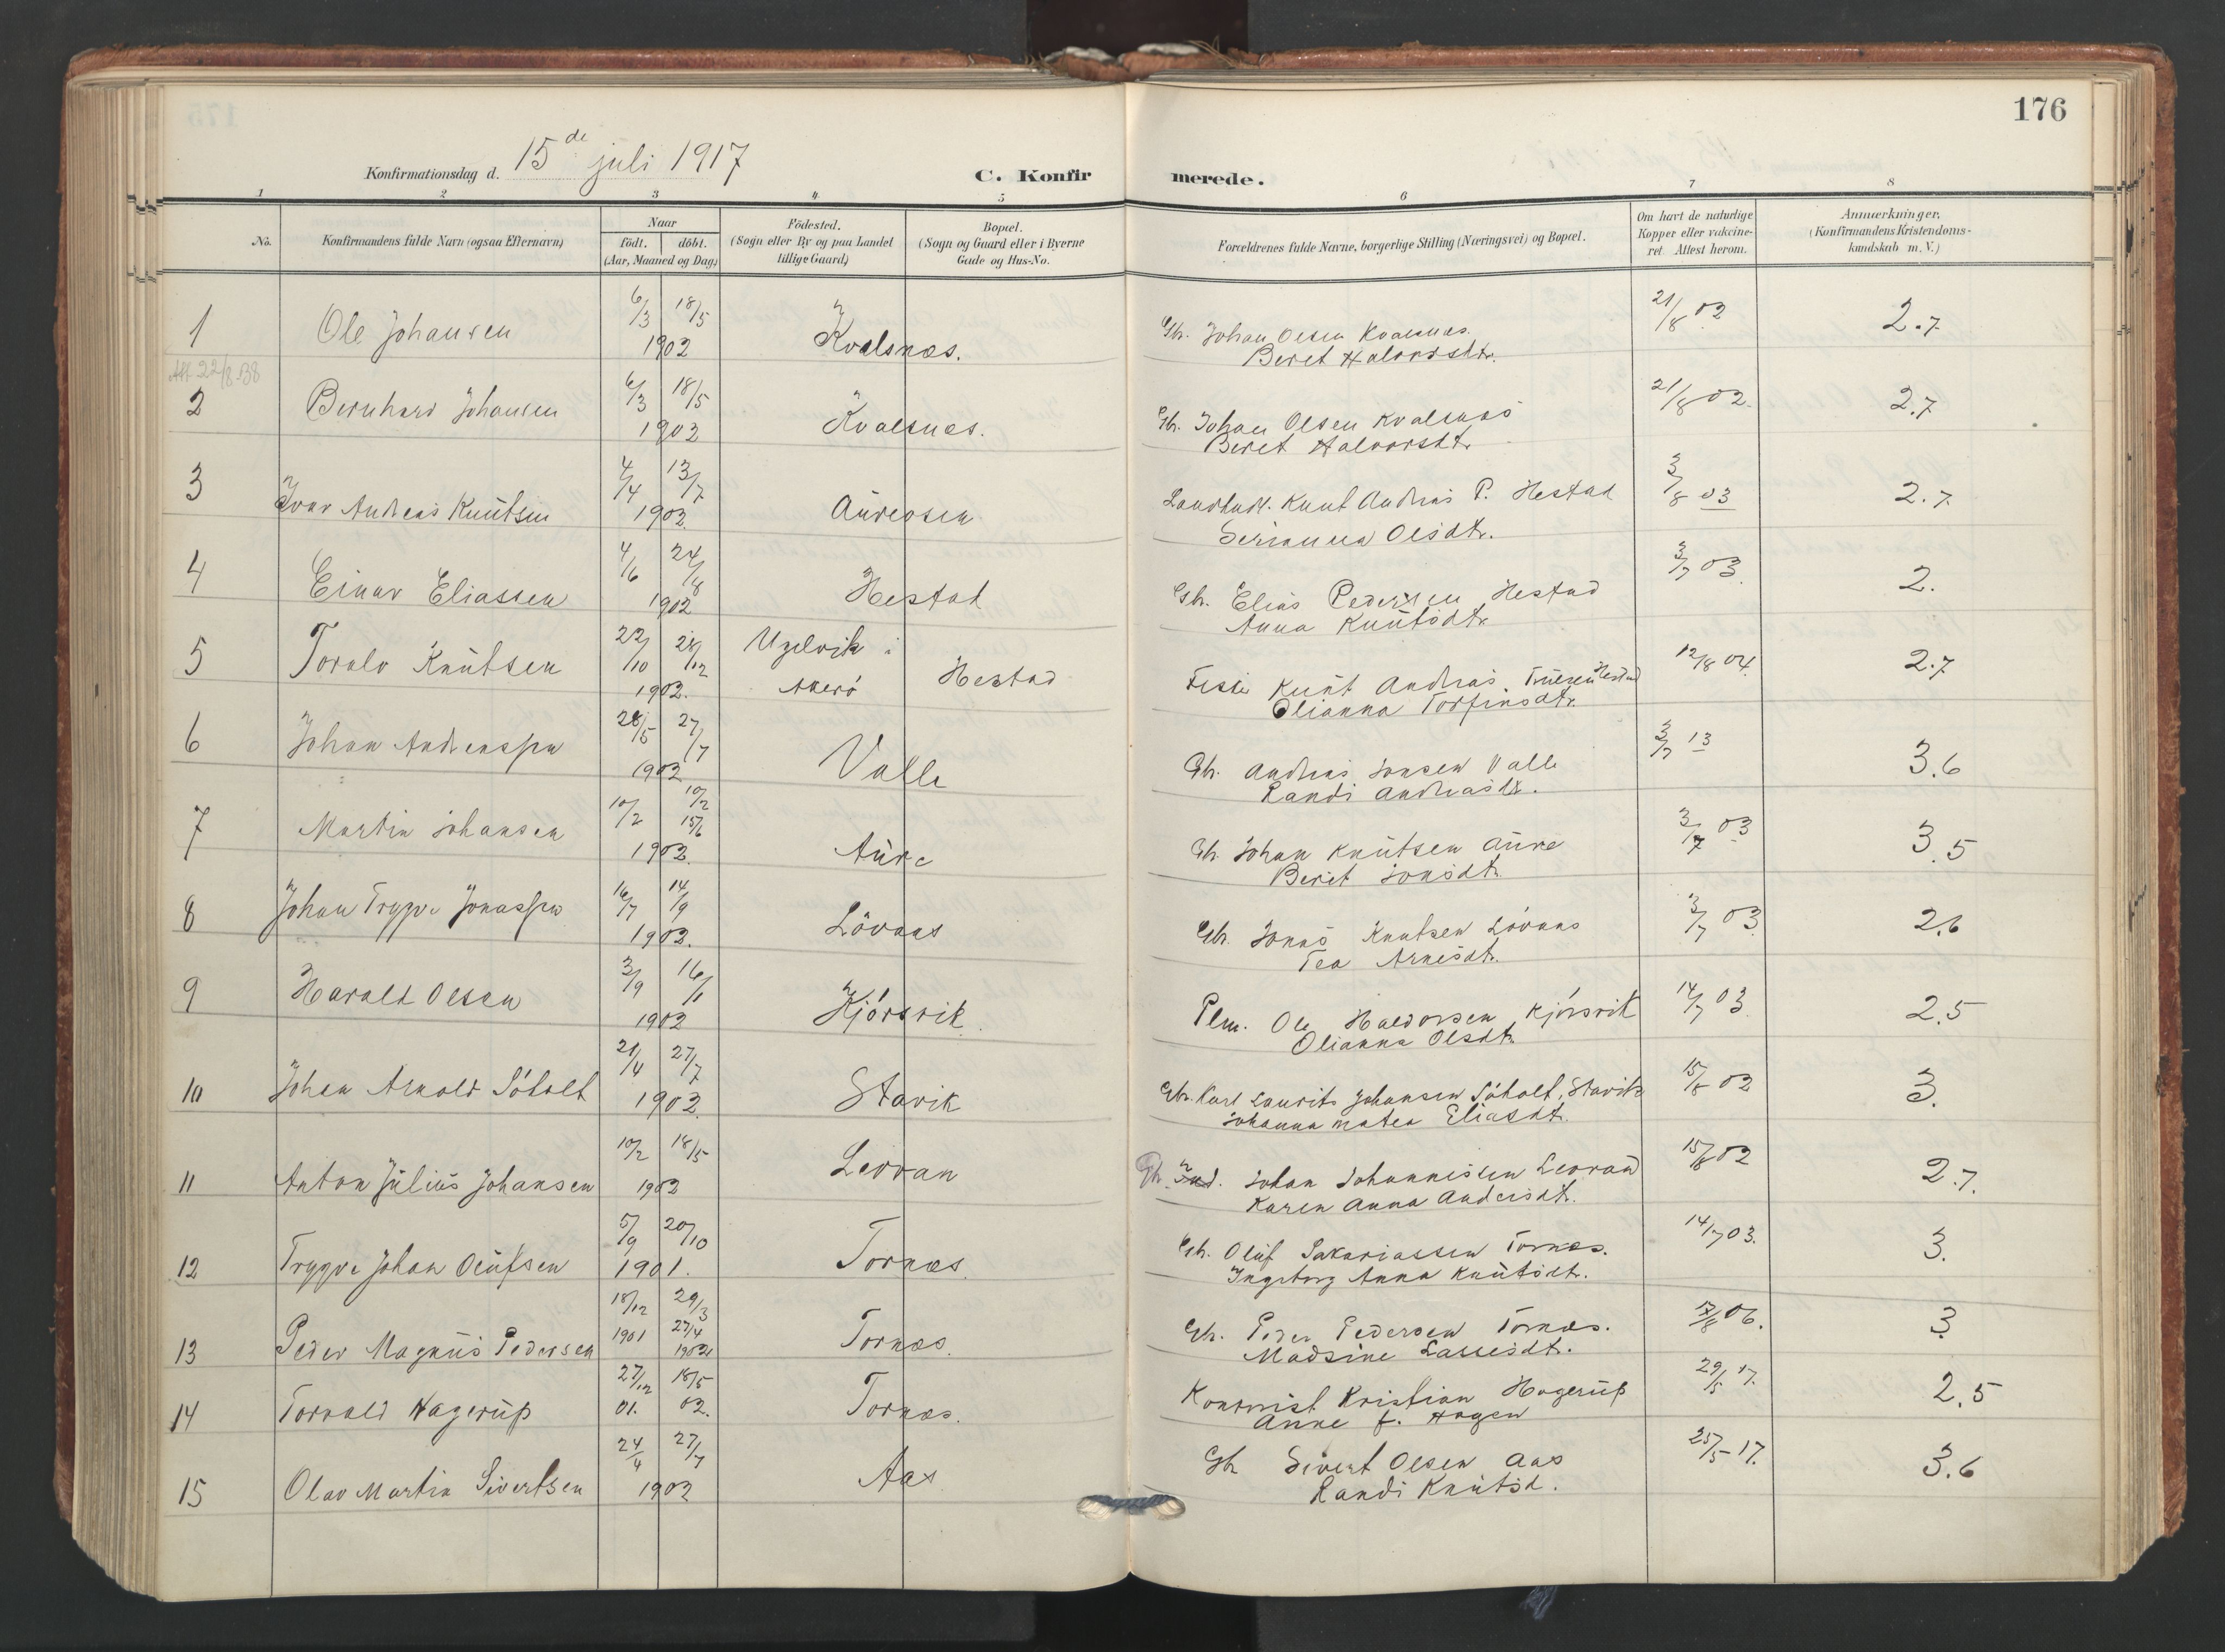 176
Konfirmationsdag d. 15de juli 1917
C. Konfirmerede.
1 2 3 4 5 6 7 8
No. Konfirmandens fulde Navn (ogsaa Efternavn) Naar födt. döbt. (Aar, Maaned og Dag) Födested. (Sogn eller By og paa Landet tillige Gaard) Bopæl. (Sogn og Gaard eller i Byerne Gade og Hus-No. Forældrenes fulde Navne, borgerlige Stilling (Næringsvei) og Bopæl. Om havt de naturlige Kopper eller vaccineret. Attest herom. Anmærkninger. (Konfirmandens Kristendomskundskab m. V.)
1 Ole Johansen 6/3 18/5 1902 Kvalsnæs. Gbr. Johan Olsen Kvalsnæs. 21/8 02 2.7
Beret Halvorsdtr.
Att 22/8 38
2 Bernhard Johansen 6/3 18/5 1902 Kvalsnæs. Gbr. Johan Olsen Kvalsnæs 21/8 02. 2.7
Beret Halvorsdtr
3 Ivar Andreas Knutsen 4/4 13/7 1902. Aureosen Landhdl. Knut Andreas P. Hestad 3/8 03 2.7.
Serianna Olsdtr.
4 Einar Eliassen 4/6 24/8 1902 Hestad Gbr. Elias Pedersen Hestad 3/7 03. 2.
Anna Knutsdtr
5 Toralv Knutsen 22/10 28/12 1902. Ugelvik i Akerö Hestad Fisker Knut Andreas Hestad 12/8 04. 2.7
Olianna Torfinsdtr.
6 Johan Andreassen 28/5 27/7 1902 Valle Gbr. Andreas Jonsen Valle 3/7 13 3.6
Randi Andreasdtr.
7 Martin Johansen 10/2 10/2 15/6 1902. Aure Gbr. Johan Knutsen Aure 3/7 03 3.5
Beret Jonsdtr.
8 Johan Trygve Jonassen 16/7 14/9 1902. Lövaas Gbr. Jonas Knutsen Lövaas 3/7 03. 2.6
Tea Arnesdtr.
9 Harald Olsen 3/9 16/11 1902 Kjörsvik. Plm. Ole Haldorsen Kjörsvik 14/7 03. 2.5
Olianna Olsdtr.
10 Johan Arnold Söholt 21/4 27/7 1902. Stavik Gbr. Karl Laurits Johansen Söholt, Stavik 15/8 02 3.
Johanna Matea Eliasdtr.
11 Anton Julius Johansen 10/2 18/5 1902 Leovan Gbr. Johan Johannessen Leovan 15/8 02 2.7.
Karen Anna Andersdtr.
12 Trygve Johan Olufsen 5/9 20/10 1901. Tornæs. Gbr. Oluf Sakariassen Tornæs. 14/7 03. 3.
Ingeborg Anna Knutsdtr.
13 Peder Magnus Pedersen 18/12 1901 29/3 27/4 1902 Tornæs. Gbr. Peder Pedersen Tornæs. 17/8 06. 3
Madsine Lassesdtr.
14 Torvald Hagerup 27/12 01. 18/5 02. Tornæs. Kontorist Kristian Hagerup 29/5 17. 2.5
Anne f. Hagen
15 Olav Martin Sivertsen 24/4 27/7 1902 Aas Gbr Sivert Olsen Aas 25/5-17. 3.6
Randi Knutsd.